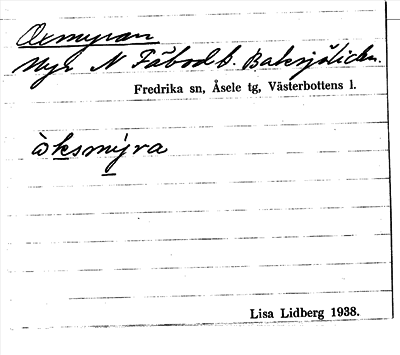 Oxmyran
Myr N Fäbodb. Baksjöliden.
Fredrika sn, Åsele tg, Västerbottens l.
òksmýra
Lisa Lidberg 1938.